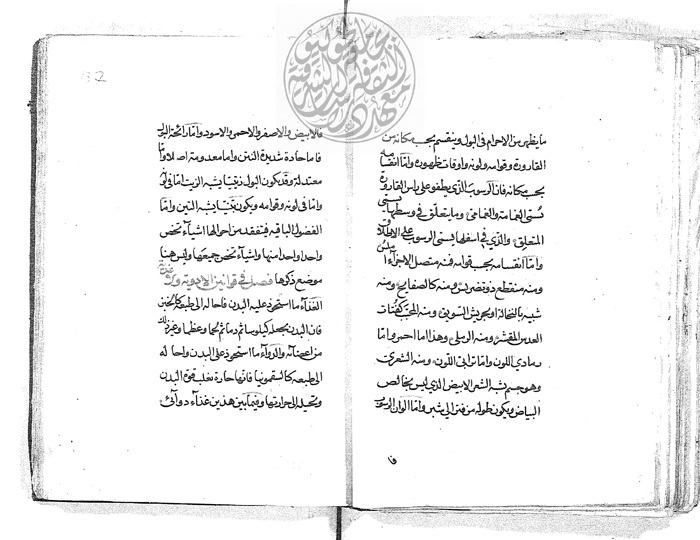 ما يظهر من الاجرام فى البول وينقسم بحسب مكانه من
القارورة وقوامه ولونه واوقات ظهوره واما انقسامه
بحسب مكانه فان الرسوب الذى يطفو على راس القارورة
تسمى الغمامة والغمامى وما يتعلق فى وسطها يسمى
المتعلق والذى فى اسفلها يسمى الرسوب على الاطلاق
واما انقسامه بحسب قوامه فمنه متصل الاجزاء املس
ومنه منقطع ذو تضريس ومنه كالصفايح ومنه
شبيه بالنخالة او بجريش السويق ومنه
العدس المقشر ومنه الرملى وهذا اما احمر واما
رمادى اللون واما ترابى اللون ومنه الشعرى
وهو جسم شبه الشعر الابيض الذى ليس بخالص
البياض ويكون طوله من فتر الى شبر واما الوان الرسوب
فا
132
فالابيض والاصفر والاحمر والاسود واما رائحة البول
فاما حادة شديدة النتن واما معدومة اصلا واما
معتدلة وقد يكون البول زيتيا يشبه الزيت اما فى لونه
واما فى لونه وقوامه ويكون يشبه التبن واما
الفضول الباقية فيتفقد من احوالها اشياء تخص
واحدا واحدا منها واشياء تخص جميعها وليس هنا
موضع ذكرها فصل فى قوانين الادوية
الغذاء ما استحوذ عليه البدن فاحاله الى طبيعته كالخبز
فان البدن يجعله كيلوسا ثم دما ثم لحما وعظما وغير ذلك
من اعضائه والدواء ما استحوذ على البدن واحاله
الى طبيعته كالسقمونيا فانها حارة تغلب قوة البدن
وتحيله الى حرارتها وفيما بين هذين غذاء دوائى